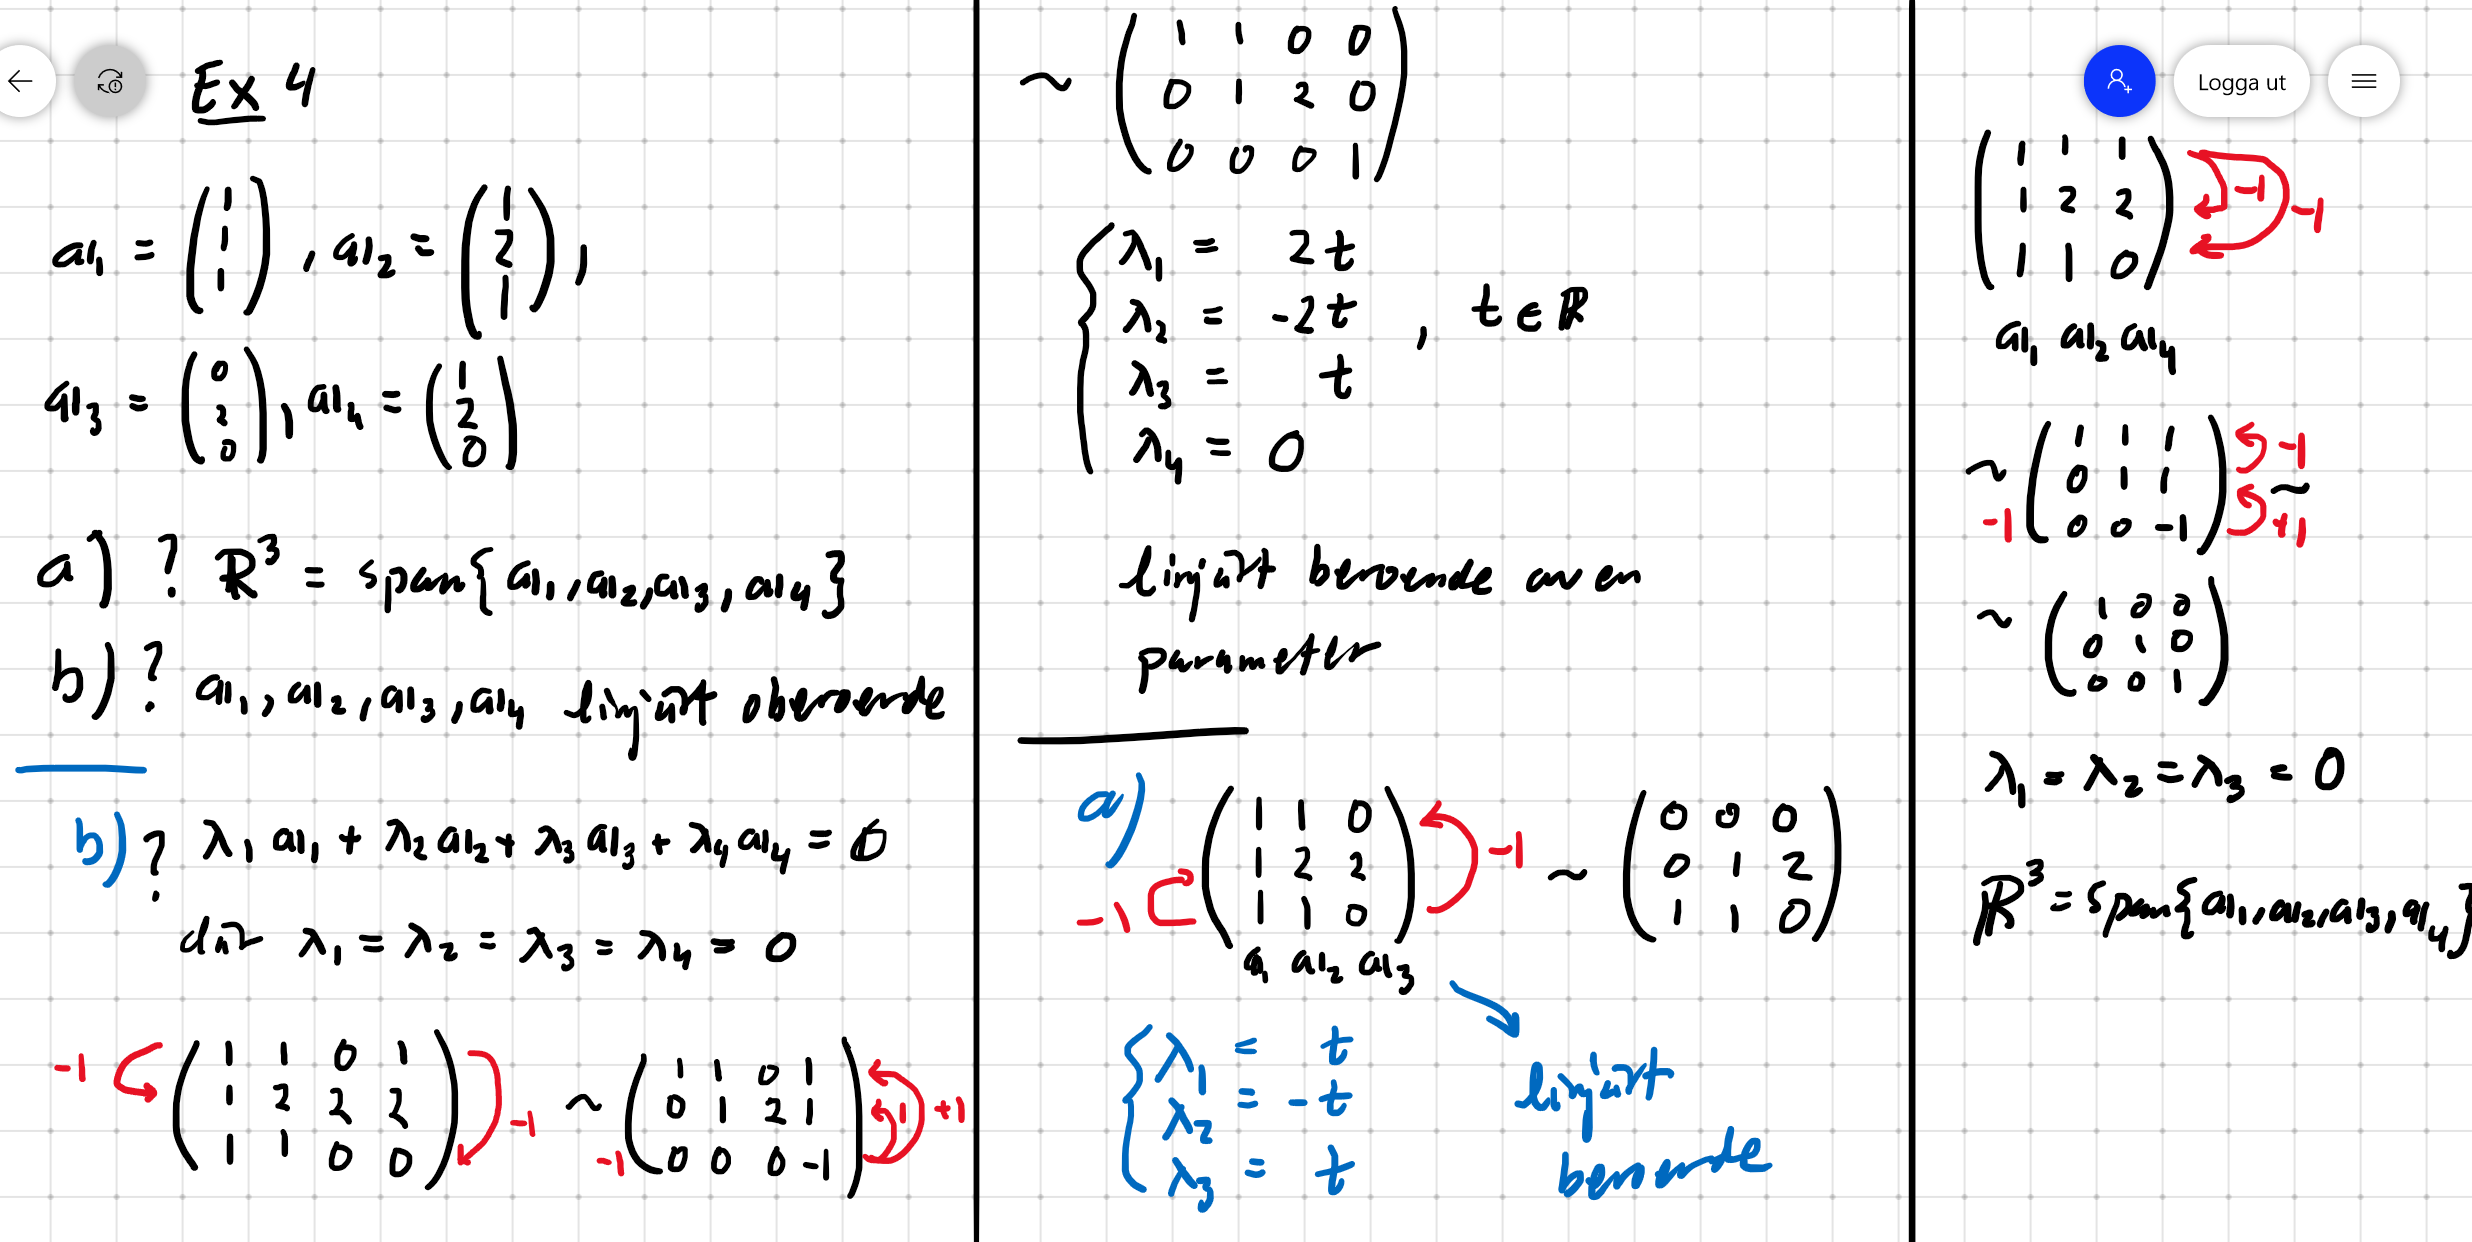 Ex 4
a₁ = (1 1 1), a₂ = (1 2 1),
a₃ = (0 2 0), a₄ = (1 2 0)
a) ? ℝ³ = span{a₁, a₂, a₃, a₄}
b) ? a₁, a₂, a₃, a₄ linjärt oberoende
b) ? λ₁a₁ + λ₂a₂ + λ₃a₃ + λ₄a₄ = 0
där λ₁ = λ₂ = λ₃ = λ₄ = 0
-1 (1 1 0 1
1 2 2 2
1 1 0 0) -1
~ -1 (1 1 0 1
0 1 2 1
0 0 0 -1) 1 +1
~ (1 1 0 0
0 1 2 0
0 0 0 1)
λ₁ = 2t
λ₂ = -2t , t ∈ ℝ
λ₃ = t
λ₄ = 0
linjärt beroende av en
parameter
a)
(1 1 0
1 2 2
1 1 0) -1
-1
a₁ a₂ a₃
~ (0 0 0
0 1 2
1 1 0)
λ₁ = t
λ₂ = -t
λ₃ = t
linjärt
beroende
Logga ut
(1 1 1
1 2 2
1 1 0) -1 -1
a₁ a₂ a₄
~ (1 1 1
0 1 1
0 0 -1) -1 ~
-1 +1
~ (1 0 0
0 1 0
0 0 1)
λ₁ = λ₂ = λ₃ = 0
ℝ³ = span{a₁, a₂, a₃, a₄}